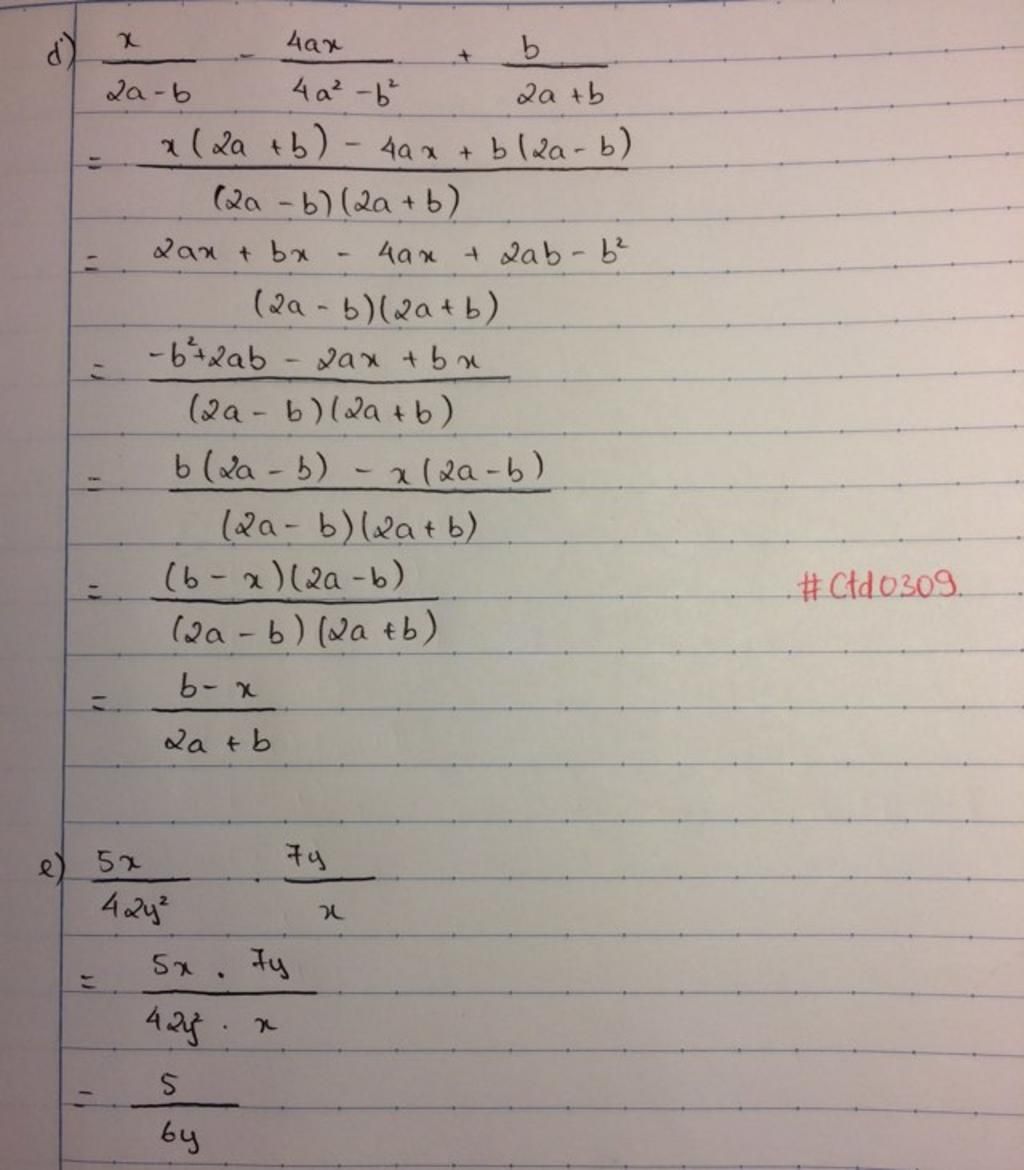 d) x - 4ax + b
2a - b 4a² - b² 2a + b
= x(2a + b) - 4ax + b(2a - b)
(2a - b)(2a + b)
= 2ax + bx - 4ax + 2ab - b²
(2a - b)(2a + b)
= -b²+2ab - 2ax + bx
(2a - b)(2a + b)
= b(2a - b) - x(2a - b)
(2a - b)(2a + b)
= (b - x)(2a - b)
#Ctd0309.
(2a - b)(2a + b)
= b - x
2a + b
e) 5x . 7y
42y² x
= 5x . 7y
42y² . x
= 5
6y